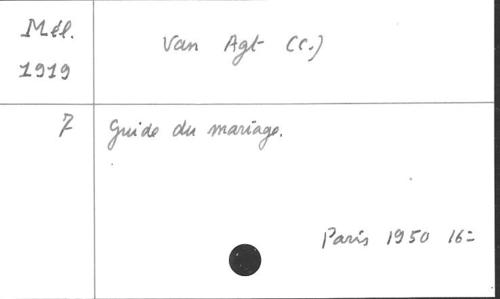 Mél.
1919
Van Agt (C.)
7
Guide du mariage.
Paris 1950 16=